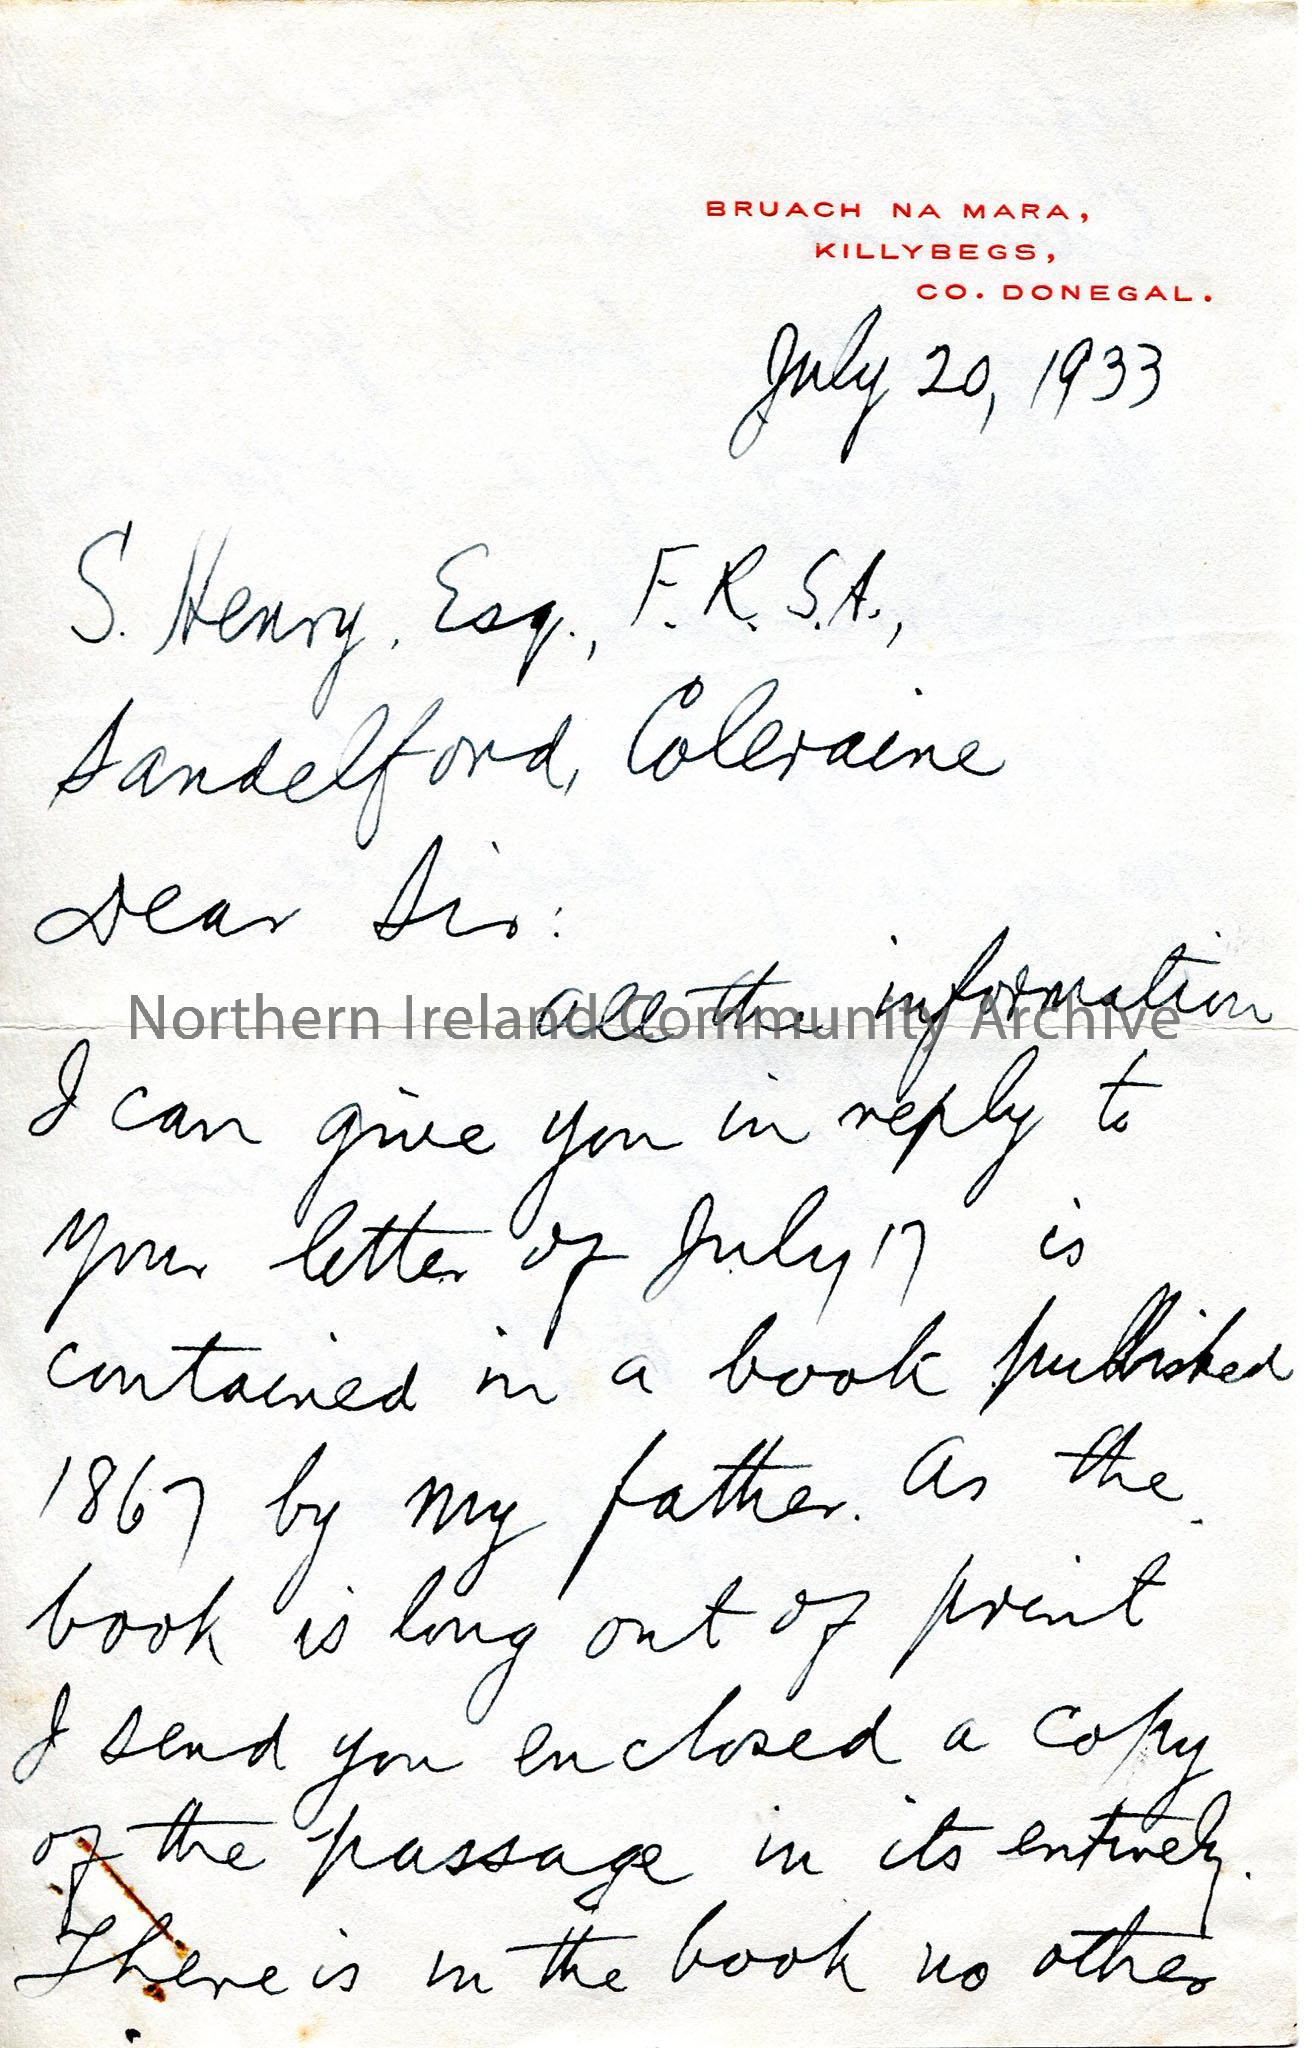 BRUACH NA MARA,
KILLYBEGS,
CO. DONEGAL.
July 20, 1933
S. Henry, Esq., F.R.S.A.,
Sandelford, Coleraine
Dear Sir:
All the information
I can give you in reply to
your letter of July 17 is
contained in a book published
1867 by my father. As the
book is long out of print
I send you enclosed a copy
of the passage in its entirely.
There is in the book no other
Northern Ireland Community Archive